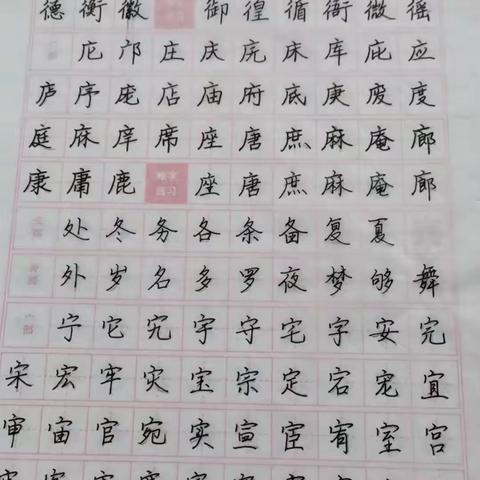 德衡徽御徨循衙微徭
庀邝庄庆庑床库庇应
庐序庞店庙府底庚废度
庭庥庠席座唐庶麻庵廊
康庸鹿难字练习座唐庶麻庵廊
处冬务各条备复夏
外岁名多罗夜梦够舞
宁它宄宇守宅字安完
宋宏牢灾宝宗定宕宠宜
审宙官宛实宣宦宥室宫